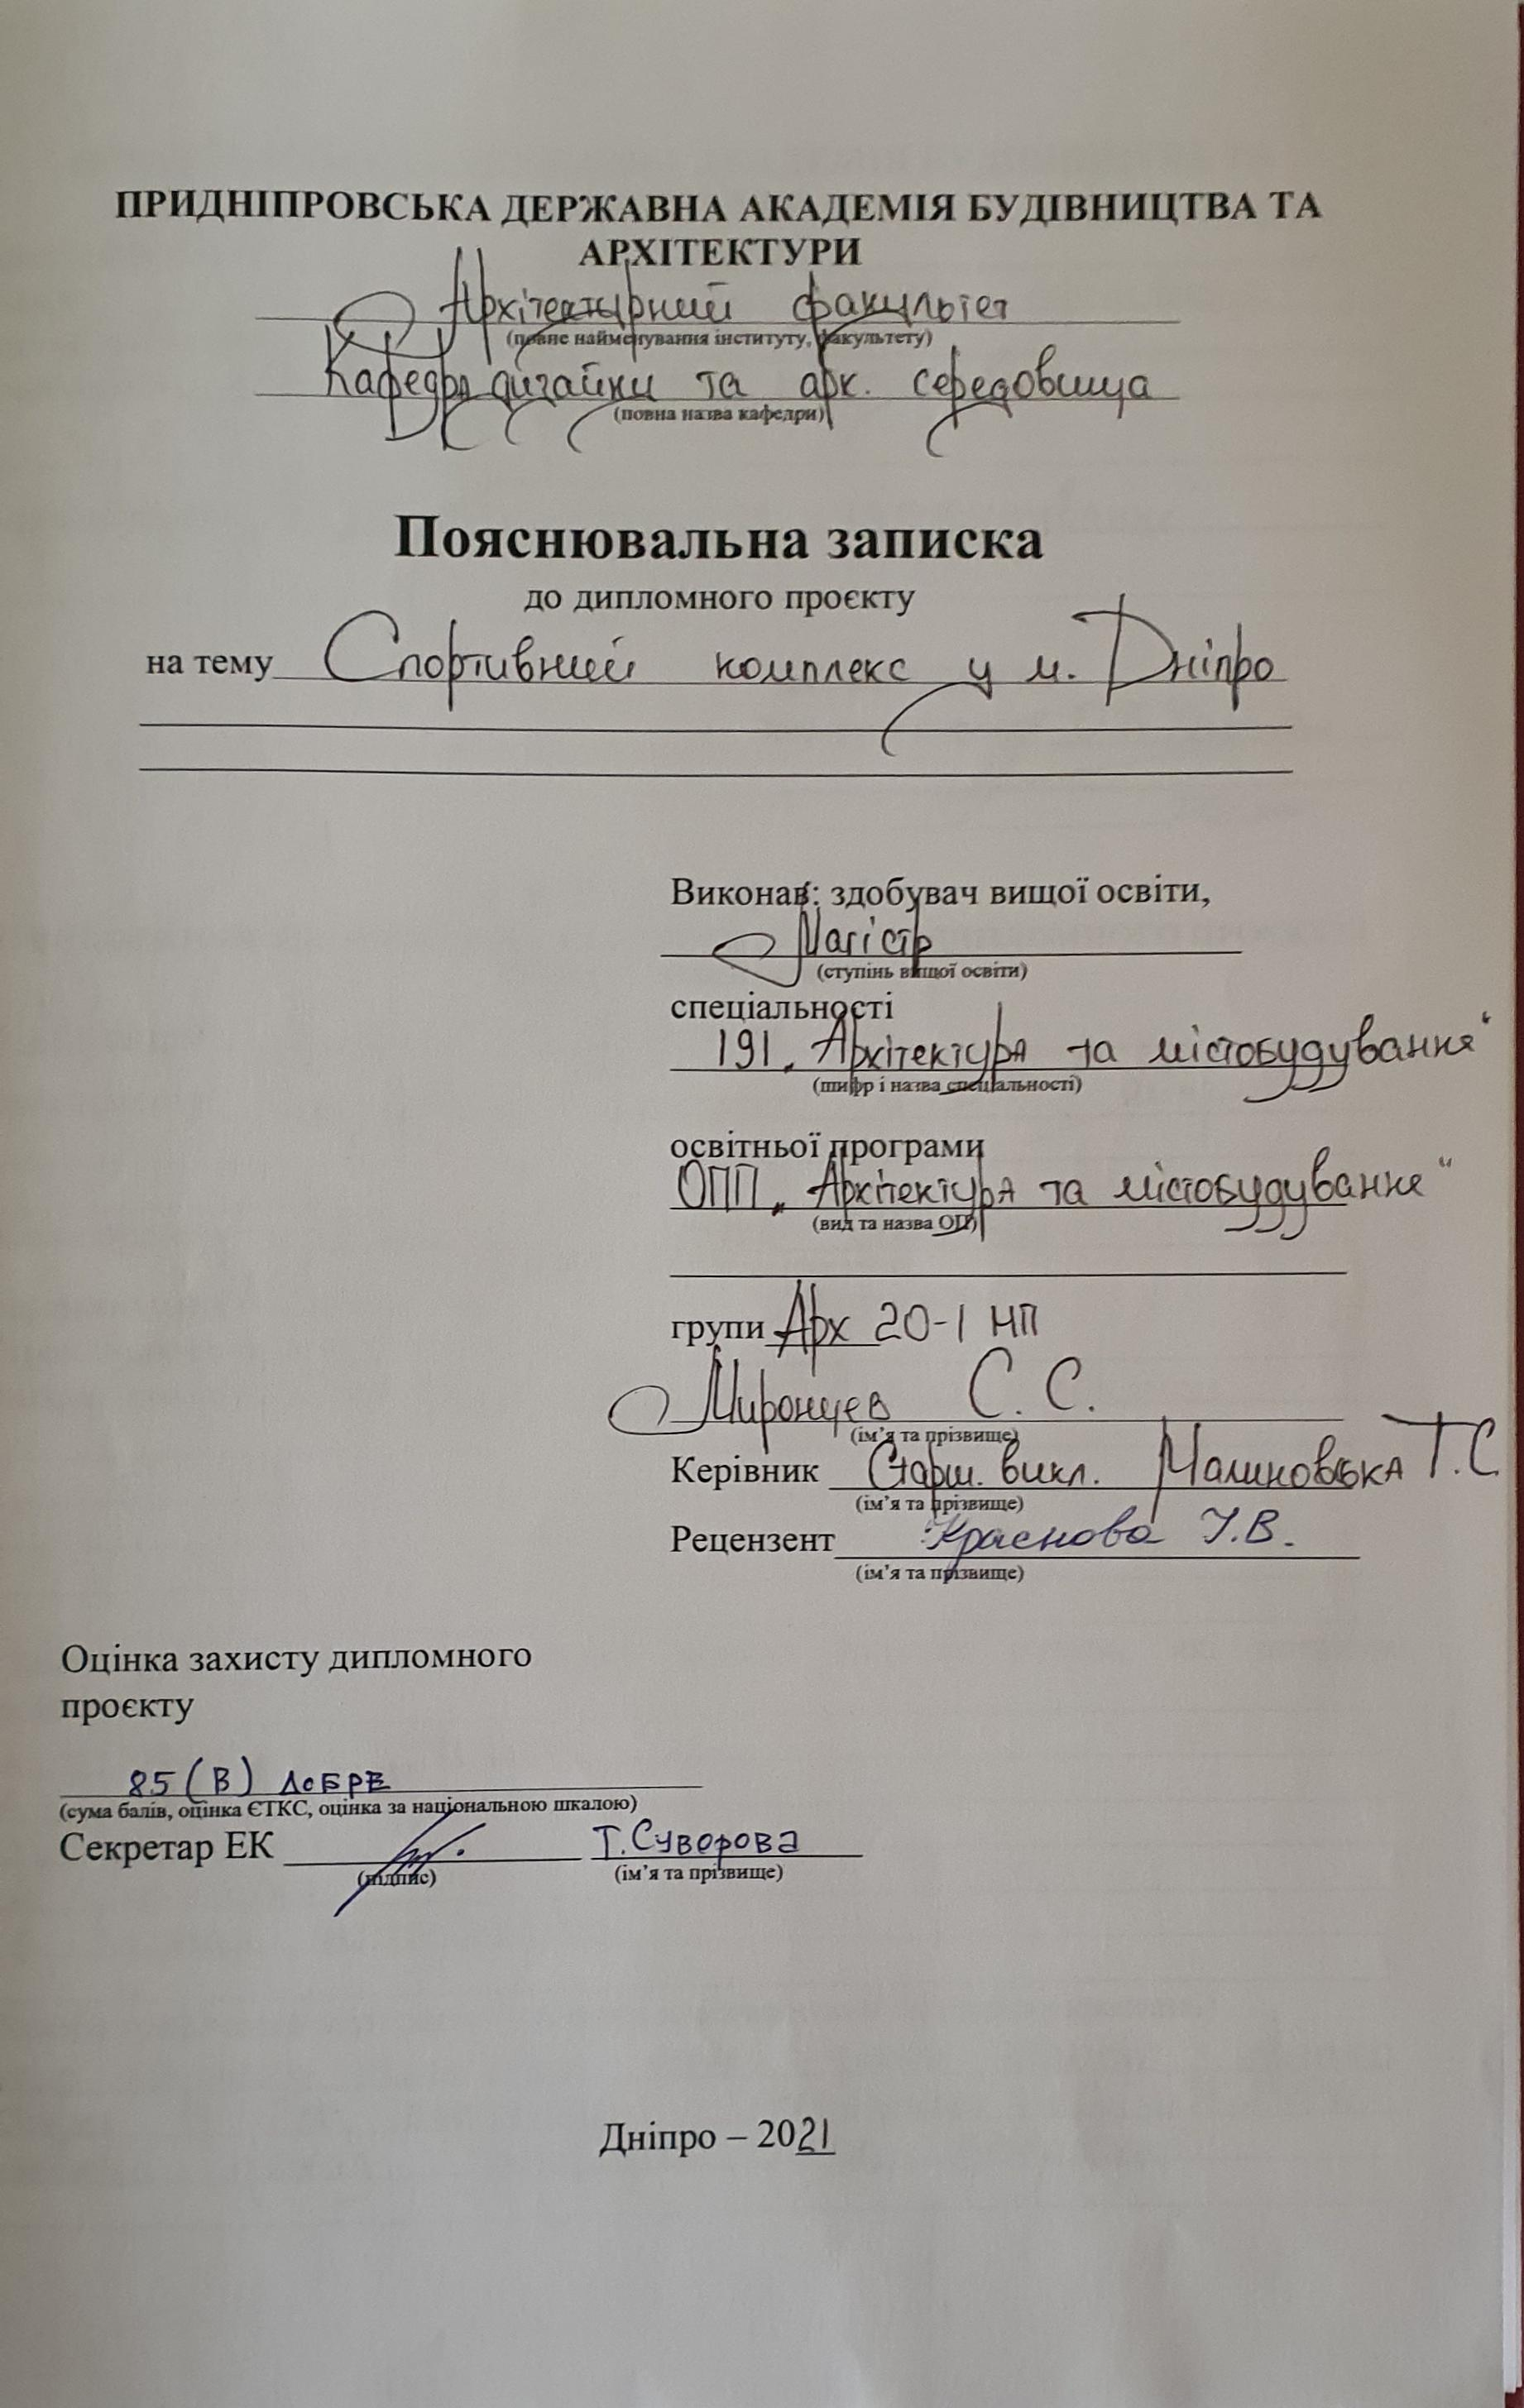 ПРИДНІПРОВСЬКА ДЕРЖАВНА АКАДЕМІЯ БУДІВНИЦТВА ТА
АРХІТЕКТУРИ
Архітектурний факультет
(повне найменування інституту, факультету)
Кафедра дизайну та арх. середовища
(повна назва кафедри)
Пояснювальна записка
до дипломного проєкту
на тему Спортивний комплекс у м. Дніпро
Виконав: здобувач вищої освіти,
Магістр
(ступінь вищої освіти)
спеціальності
191 „Архітектура та містобудування“
(шифр і назва спеціальності)
освітньої програми
ОПП „Архітектура та містобудування“
(вид та назва ОП)
групи Арх 20-1 МП
Миронцев С. С.
(ім’я та прізвище)
Керівник Старш. викл. Малиновська Т.С
(ім’я та прізвище)
Рецензент Краснова У.В.
(ім’я та прізвище)
Оцінка захисту дипломного
проєкту
85 (В) ДОБРЕ
(сума балів, оцінка ЄТКС, оцінка за національною шкалою)
Секретар ЕК Т.Суворова
(підпис) (ім’я та прізвище)
Дніпро – 2021